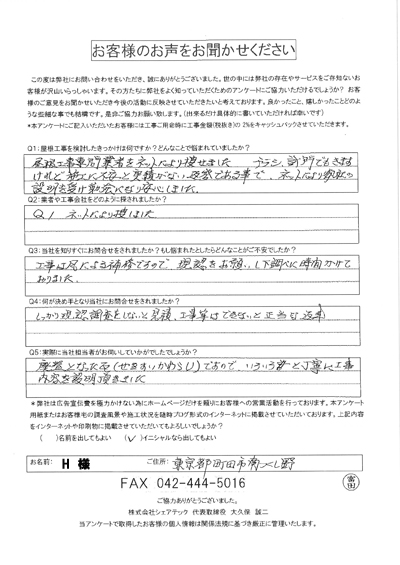 お客様のお声をお聞かせください
この度は弊社にお問い合わせをいただき、誠にありがとうございました。世の中には弊社の存在やサービスをご存知ないお
客様が沢山いらっしゃいます。その方たちにも弊社をよく知っていただくためのアンケートにご協力いただけるでしょうか？お客
様のご意見をお聞かせいただき今後の活動に反映させていただきたいと考えております。良かったこと、嬉しかったことどのよ
うな些細な事でも結構です。是非ご協力お願い致します。（出来るだけ具体的に書いていただければ幸いです）
＊本アンケートにご記入いただいたお客様には工事ご用命時に工事金額（税抜き）の2％をキャッシュバックさせていただきます。
Q1：屋根工事を検討したきっかけは何ですか？どんなことで悩まれていましたか？
屋根工事専門業者をネットにより捜せました
Q2：業者や工事会社をどのように探されましたか？
Q1 ネットにより捜しました
Q3：当社を知りすぐにお問合せをされましたか？もし悩まれたとしたらどんなことがご不安でしたか？
おりました。
Q4：何が決め手となり当社にお問合せをされましたか？
しっかり現認調査をしないと見積、工事等はできないと
Q5：実際に当社担当者がお伺いしていかがでしたでしょうか？
内容を説明頂きました
＊弊社は広告宣伝費を極力かけない為にホームページだけを頼りにお客様への営業活動を行っております。本アンケート
用紙またはお客様宅の調査風景や施工状況を随時ブログ形式のインターネットに掲載させていただいております。上記内容
をインターネットや印刷物に掲載させていただいてもよろしいでしょうか？
（　）名前を出してもよい　（✓）イニシャルなら出してもよい
お名前： H 様　ご住所： 東京都町田市南つくし野
FAX 042-444-5016
ご協力ありがとうございました。
株式会社シェアテック 代表取締役 大久保 誠二
当アンケートで取得したお客様の個人情報は関係法規に基づき厳正に管理いたします。